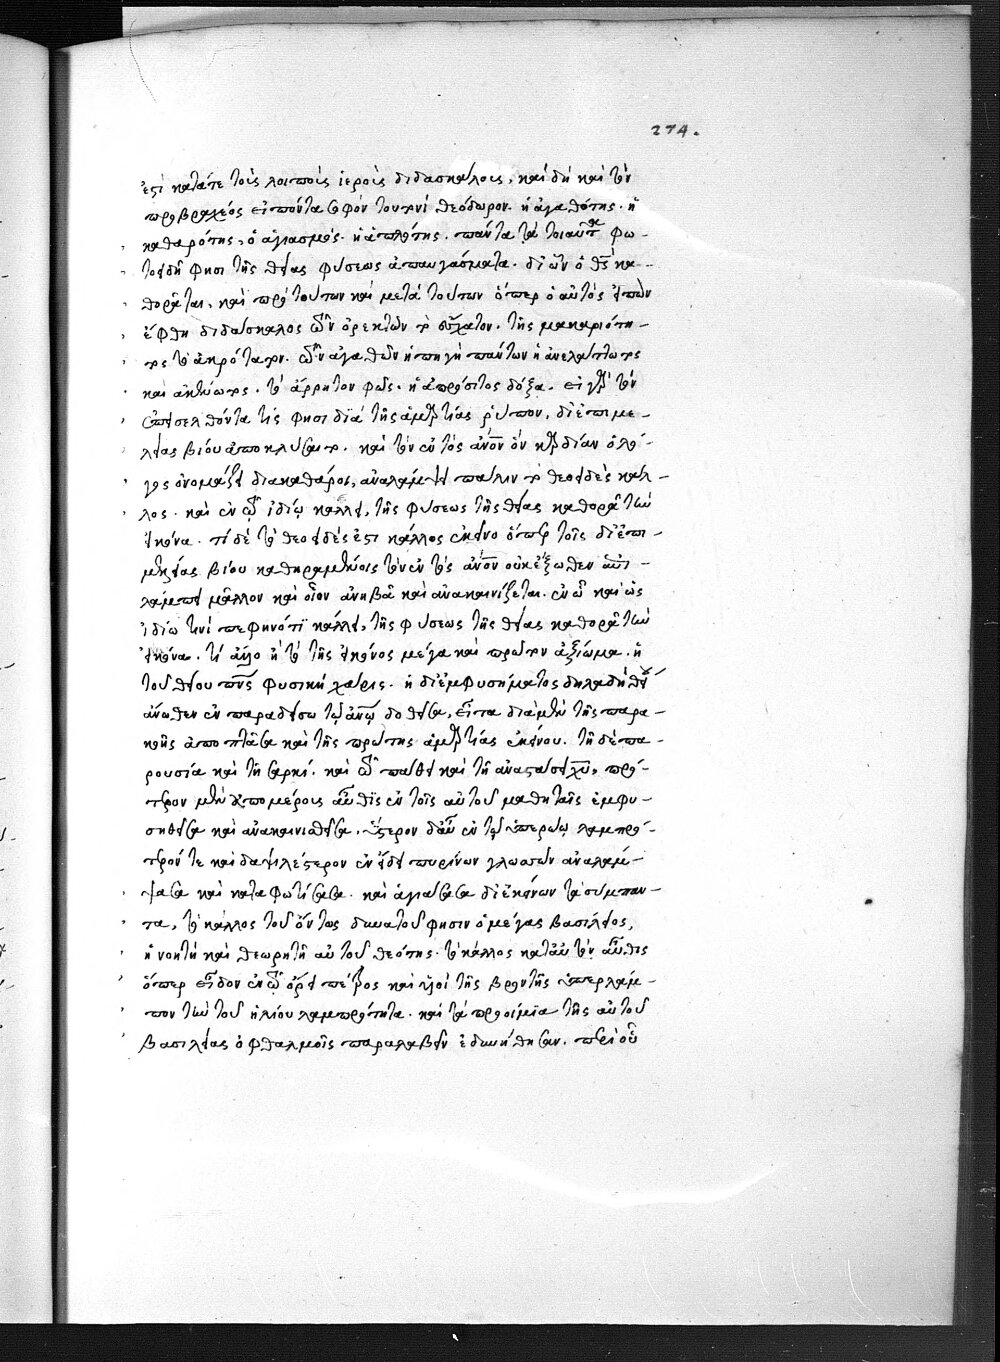 274.
ἐστὶ κατά τε τοὺς λοιποὺς ἱεροὺς διδασκάλους, καὶ δὴ καὶ τὸν
πρὸ βραχέος εἰπόντα σοφὸν τουτονὶ θεόδωρον. ἡ ἀγαθότης. ἡ
καθαρότης, ὁ ἁγιασμός. ἡ ἁπλότης. πάντα τὰ τοιαῦτα φω-
τοειδῆ φησι τῆς θείας φύσεως ἀπαυγάσματα. δι' ὧν ὁ θς κα-
θορᾶται. καὶ πρὸ τούτων καὶ μετὰ τούτων ὅπερ ὁ αὐτὸς εἰπὼν
ἔφθη διδάσκαλος τῶν ὀρεκτῶν τὸ ἔσχατον. τῆς μακαριότη-
τος τὸ ἀκρότατον. τῶν ἀγαθῶν ἡ πηγὴ πάντων ἡ ἀνελάττωτος
καὶ ἀκένωτος. τὸ ἄρρητον φῶς. ἡ ἀπρόσιτος δόξα. εἰ γὰρ τὸν
ἐπεισελθόντα τίς φησι διὰ τῆς ἁμαρτίας ῥύπον, δι' ἐπιμε-
λείας βίου ἀποκλύσαιτο. καὶ τὸν ἐντὸς ἀνον ὃν καρδίαν ὁ λό-
γος ὀνομάζει διακαθάροι, ἀναλάμπει πάλιν τὸ θεοειδὲς κάλ-
λος. καὶ ἐν τῷ ἰδίῳ κάλλει, τῆς φύσεως τῆς θείας καθορᾷ τὴν
εἰκόνα. τί δὲ τὸ θεοειδές ἐστι κάλλος ἐκεῖνο ὅπερ τοῖς δι' ἐπι-
μελείας βίου κεκαθαρμένοις τὸν ἐντὸς ἀνον οὐκ ἔξωθεν ἐπι-
λάμπει μᾶλλον καὶ οἷον ἀνηβᾷ καὶ ἀνακαινίζεται. ἐν ᾧ καὶ ὡς
ἰδίῳ τινὶ πεφηνότι κάλλει, τῆς φύσεως τῆς θείας καθορᾷ τὴν
εἰκόνα. τί ἄλλο ἢ τὸ τῆς εἰκόνος μέγα καὶ πρῶτον ἀξίωμα. ἡ
τοῦ θείου πνς φυσικὴ χάρις. ἡ δι' ἐμφυσήματος δηλαδὴ θείου
ἄνωθεν ἐν παραδείσω τῷ ἀνῳ δοθεῖσα, εἶτα διὰ μὲν τῆς παρα-
κοῆς ἀποπτᾶσα καὶ τῆς πρώτης ἁμαρτίας ἐκείνου. τῇ δὲ πα-
ρουσία καὶ τῇ σαρκί. καὶ τῷ πάθει καὶ τῇ ἀναστάσει χυ, πρό-
τερον μὲν ἀπὸ μέρους αὖθις ἐν τοῖς αὐτοῦ μαθηταῖς ἐμφυ-
σηθεῖσα καὶ ἀνακαινισθεῖσα. ὕστερον δ' αὖ ἐν τῷ ὑπερώῳ λαμπρό-
τερόν τε καὶ δαψιλέστερον ἐν εἴδει πυρίνων γλωσσῶν ἀναλάμ-
ψασα καὶ καταφωτίσασα. καὶ ἁγιάσασα δι' ἐκείνων τὰ σύμπαν-
τα, τὸ κάλλος τοῦ ὄντως δυνατοῦ φησιν ὁ μέγας βασίλειος,
ἡ νοητὴ καὶ θεωρητὴ αὐτοῦ θεότης. τὸ κάλλος κατ' αὐτὸν αὖθις
ὅπερ εἶδον ἐν τῷ ὄρει πέτρος καὶ υἱοὶ τῆς βροντῆς ὑπερλάμ-
πον τὴν τοῦ ἡλίου λαμπρότητα. καὶ τὰ προοίμια τῆς αὐτοῦ
βασιλείας ὀφθαλμοῖς παραλαβεῖν ἐδυνήθησαν. περὶ οὗ